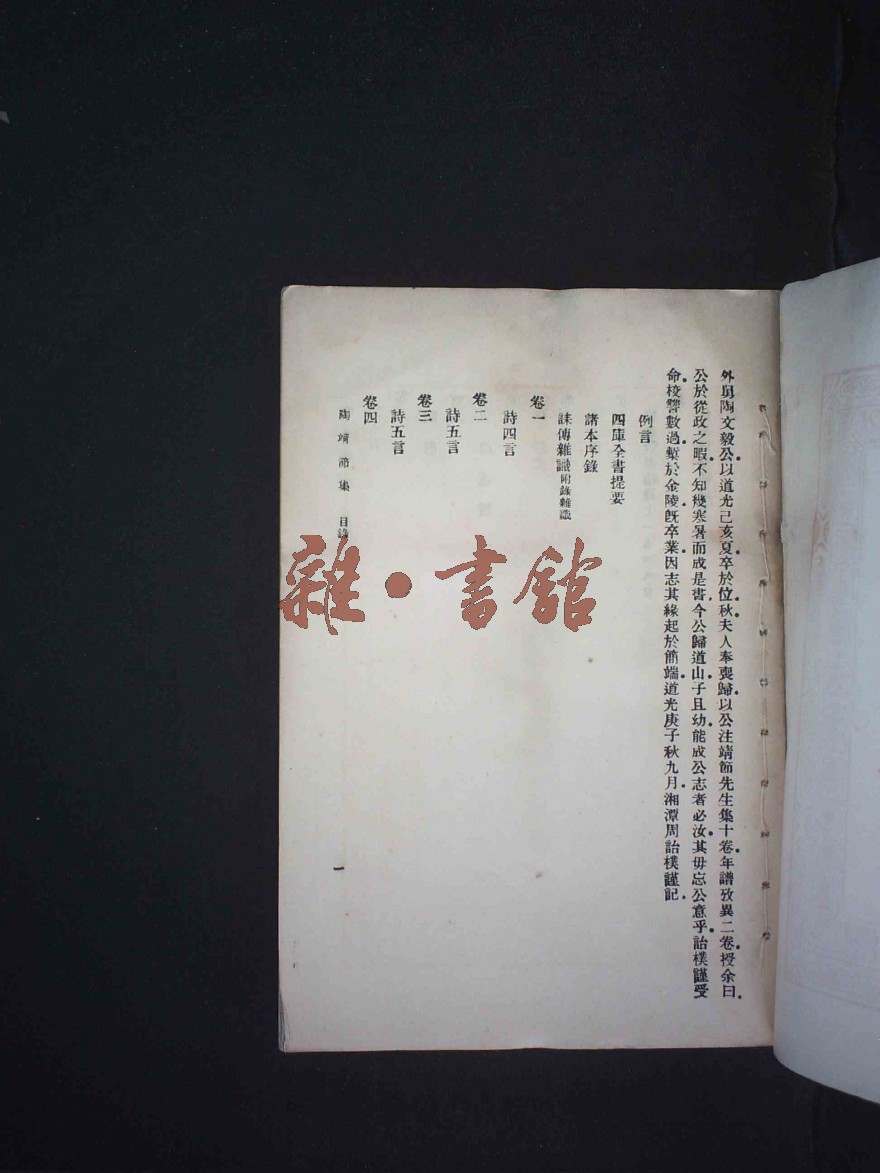 外舅陶文毅公以道光己亥夏卒於位秋夫人奉喪歸以公注靖節先生集十卷年譜攷異二卷授余曰
公於從政之暇不知幾寒暑而成是書今公歸道山子且幼能成公志者必汝其毋忘公意乎詒樸謹受
命校讐數過槧於金陵旣卒業因志其緣起於簡端道光庚子秋九月湘潭周詒樸謹記
例言
四庫全書提要
諸本序錄
誄傳雜識附錄雜識
卷一
詩四言
卷二
詩五言
卷三
詩五言
卷四
陶靖節集 目錄 一
雜·書館